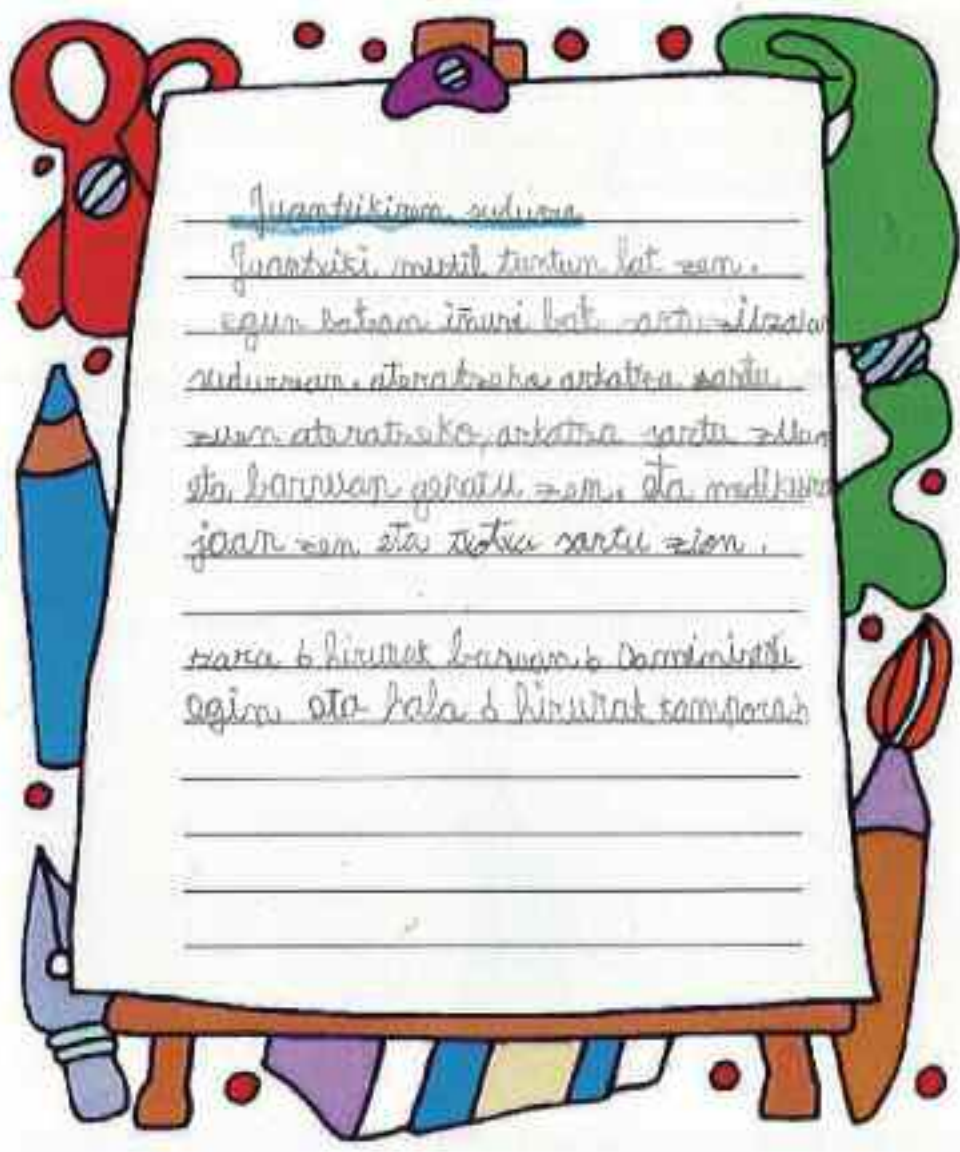 Juantxikiren sudurra
Juantxiki mutil tuntun bat zen.
egun batean inuri bat sartu zitzaion
sudurrean. ateratzeko arkatza sartu
zuen ateratzeko, arkatza sartu zuen
eta barruan geratu zen. eta medikura
joan zen eta txotxa sartu zion.
zara 6 hirurak baruan 6
egin eta hala 6 hirurak kampora